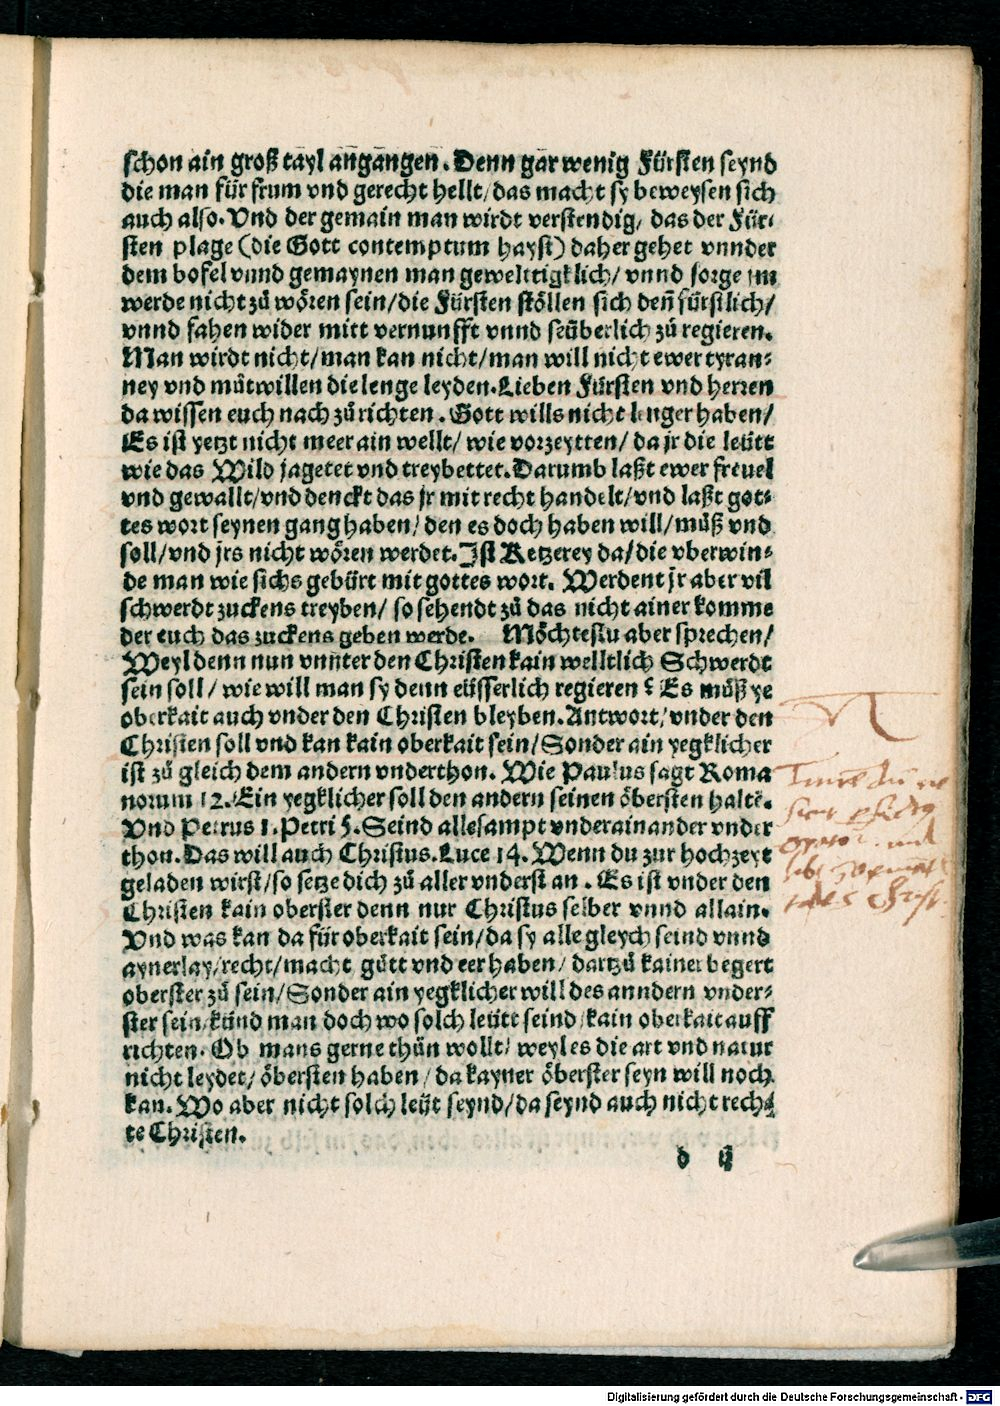 schon ain groß tayl angangen. Denn gar wenig Fürsten seynd
die man für frum vnd gerecht hellt/ das macht sy beweysen sich
auch also. Vnd der gemain man wirdt verstendig/ das der Für⸗
sten plage (die Gott contemptum hayst) daher gehet vnnder
dem bofel vnnd gemaynen man geweltigklich/ vnnd sorge im
werde nicht zů wören sein/ die Fürsten stöllen sich deñ fürstlich/
vnnd fahen wider mitt vernunfft vnnd seüberlich zů regieren.
Man wirdt nicht/ man kan nicht/ man will nicht ewer tyran⸗
ney vnd můtwillen die lenge leyden. Lieben Fürsten vnd herren
da wissen euch nach zů richten. Gott wills nicht lenger haben/
Es ist yetzt nicht meer ain wellt/ wie vorzeytten/ da jr die leütt
wie das Wild jagetet vnd treybettet. Darumb laßt ewer freuel
vnd gewallt/ vnd denckt das jr mit recht handelt/ vnd laßt got⸗
tes wort seynen gang haben/ den es doch haben will/ můß vnd
soll/ vnd jrs nicht wören werdet. Ist Ketzerey da/ die vberwin⸗
de man wie sichs gebürt mit gottes wort. Werdent jr aber vil
schwerdt zuckens treyben/ so sehendt zů das nicht ainer komme
der euch das zuckens geben werde. Möchtestu aber sprechen/
Weyl denn nun vnnter den Christen kain welltlich Schwerdt
sein soll/ wie will man sy denn eüsserlich regieren? Es můß ye
oberkait auch vnder den Christen bleyben. Antwort/ vnder den
Christen soll vnd kan kain oberkait sein/ Sonder ain yegklicher
ist zů gleich dem andern vnderthon. Wie Paulus sagt Roma
norum 12. Ein yegklicher soll den andern seinen öbersten haltẽ.
Vnd Petrus 1. Petri 5. Seind allesampt vnderainander vnder
thon. Das will auch Christus. Luce 14. Wenn du zur hochzeyt
geladen wirst/ so setze dich zů aller vnderst an. Es ist vnder den
Christen kain oberster denn nur Christus selber vnnd allain.
Vnd was kan da für oberkait sein/ da sy alle gleych seind vnnd
aynerlay/ recht/ macht gůtt vnd eer haben/ dartzů kainer begert
oberster zů sein/ Sonder ain yegklicher will des anndern vnder⸗
ster sein/ künd man doch wo solch leütt seind/ kain oberkait auff
richten. Ob mans gerne thůn wollt/ weyl es die art vnd natur
nicht leydet/ öbersten haben/ da kayner öberster seyn will noch
kan. Wo aber nicht solch leüt seynd/ da seynd auch nicht rech⸗
te Christen.
d ij
Digitalisierung gefördert durch die Deutsche Forschungsgemeinschaft - DFG